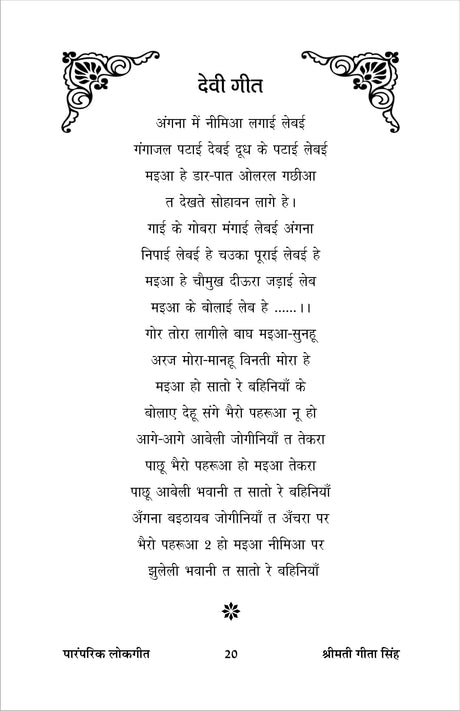 देवी गीत
अंगना में नीमिआ लगाई लेबई
गंगाजल पटाई देबई दूध के पटाई लेबई
मइआ हे डार-पात ओलरल गछीआ
त देखते सोहावन लागे हे।
गाई के गोबरा मंगाई लेबई अंगना
निपाई लेबई हे चउका पूराई लेबई हे
मइआ हे चौमुख दीऊरा जड़ाई लेब
मइआ के बोलाई लेब हे ......।।
गोर तोरा लागीले बाघ मइआ-सुनहू
अरज मोरा-मानहू विनती मोरा हे
मइआ हो सातो रे बहिनियाँ के
बोलाए देहू संगे भैरो पहरूआ नू हो
आगे-आगे आबेली जोगीनियाँ त तेकरा
पाछू भैरो पहरूआ हो मइआ तेकरा
पाछू आबेली भवानी त सातो रे बहिनियाँ
अँगना बइठायब जोगीनियाँ त अँचरा पर
भैरो पहरूआ 2 हो मइआ नीमिआ पर
झुलेली भवानी त सातो रे बहिनियाँ
पारंपरिक लोकगीत 20 श्रीमती गीता सिंह